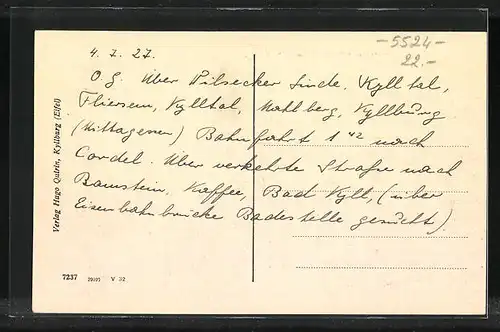 -5524-
22.-
4. 7. 27.
O. G. Über Pilsecker Linde, Kylltal,
Fliessem, Kylltal, Mahlberg, Kyllburg
(Mittagessen) Bahnfahrt 1 42 nach
Cordel. Über verkehrte Straße nach
Ramstein, Kaffee, Bad Kyll, (über
Eisenbahnbrücke Badestelle gesucht).
Verlag Hugo Kyllburg (Eifel)
7237 V 32